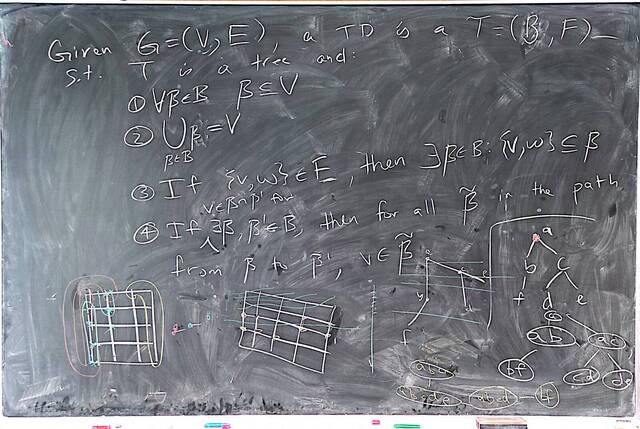 Given G=(V,E), a TD is a T=(B,F)
s.t. T is a tree and:
① ∀β∈B β⊆V
② ⋃β=V
β∈B
③ If {v,w}∈E, then ∃β∈B: {v,w}⊆β
v∈β∩β' for
④ If ∃β,β'∈B, then for all β̃ in the path
from β to β', v∈β̃
a
b c
f d e
a
ab ac
bf cd
f
bf